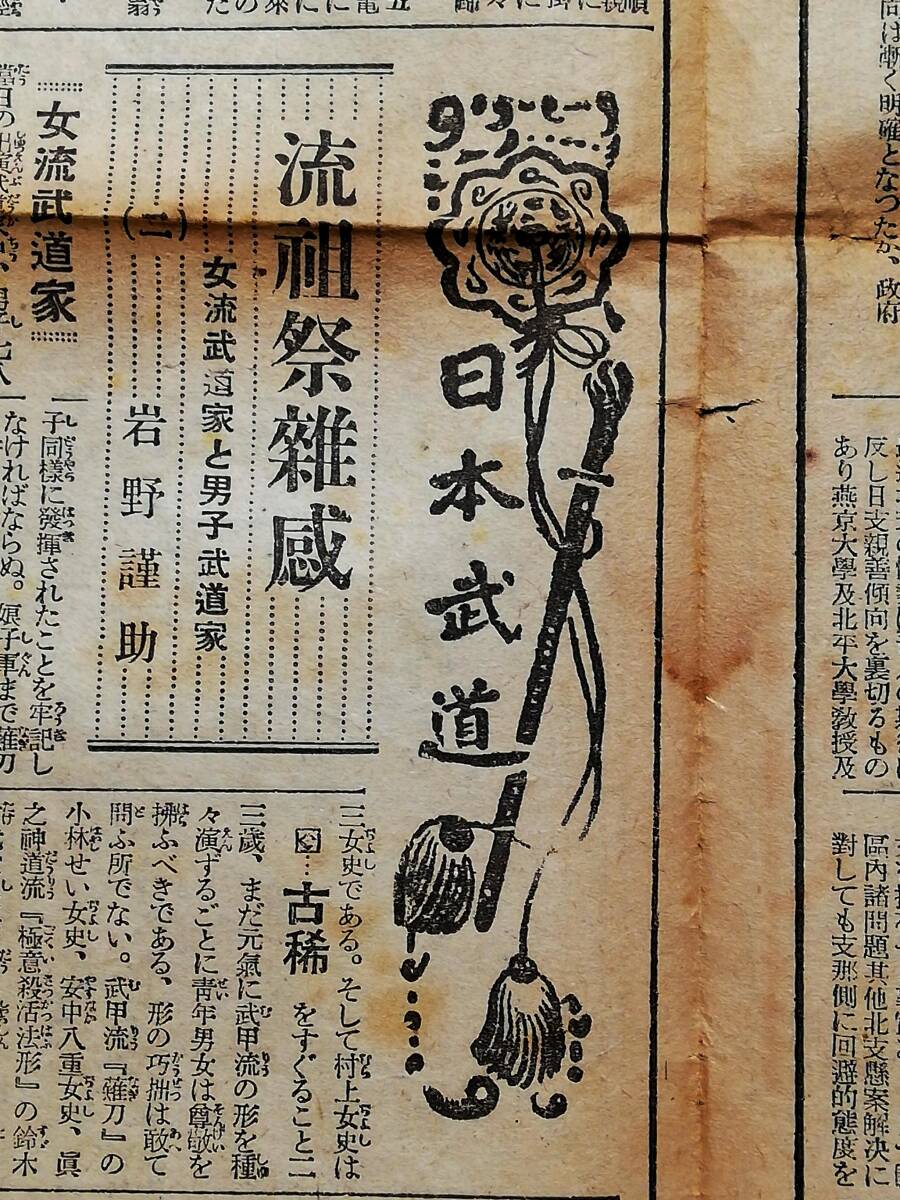 向は漸く明確となつたが、政府
反し日支親善傾向を裏切るもの
あり燕京大學及北平大學教授及
區內諸問題其他北支懸案解決に
對しても支那側に回避的態度を
日本武道
流祖祭雜感
女流武道家と男子武道家
(二)
岩野謹助
女流武道家
子同樣に發揮されたことを牢記し
なければならぬ。娘子軍まで薙刀
三女史である。そして村上女史は
古稀をすぐること二
三歲、まだ元氣に武甲流の形を種
々演ずるごとに靑年男女は尊敬を
拂ふべきである、形の巧拙は敢て
問ふ所でない。武甲流『薙刀』の
小林せい女史、安中八重女史、眞
之神道流『極意殺活法形』の鈴木